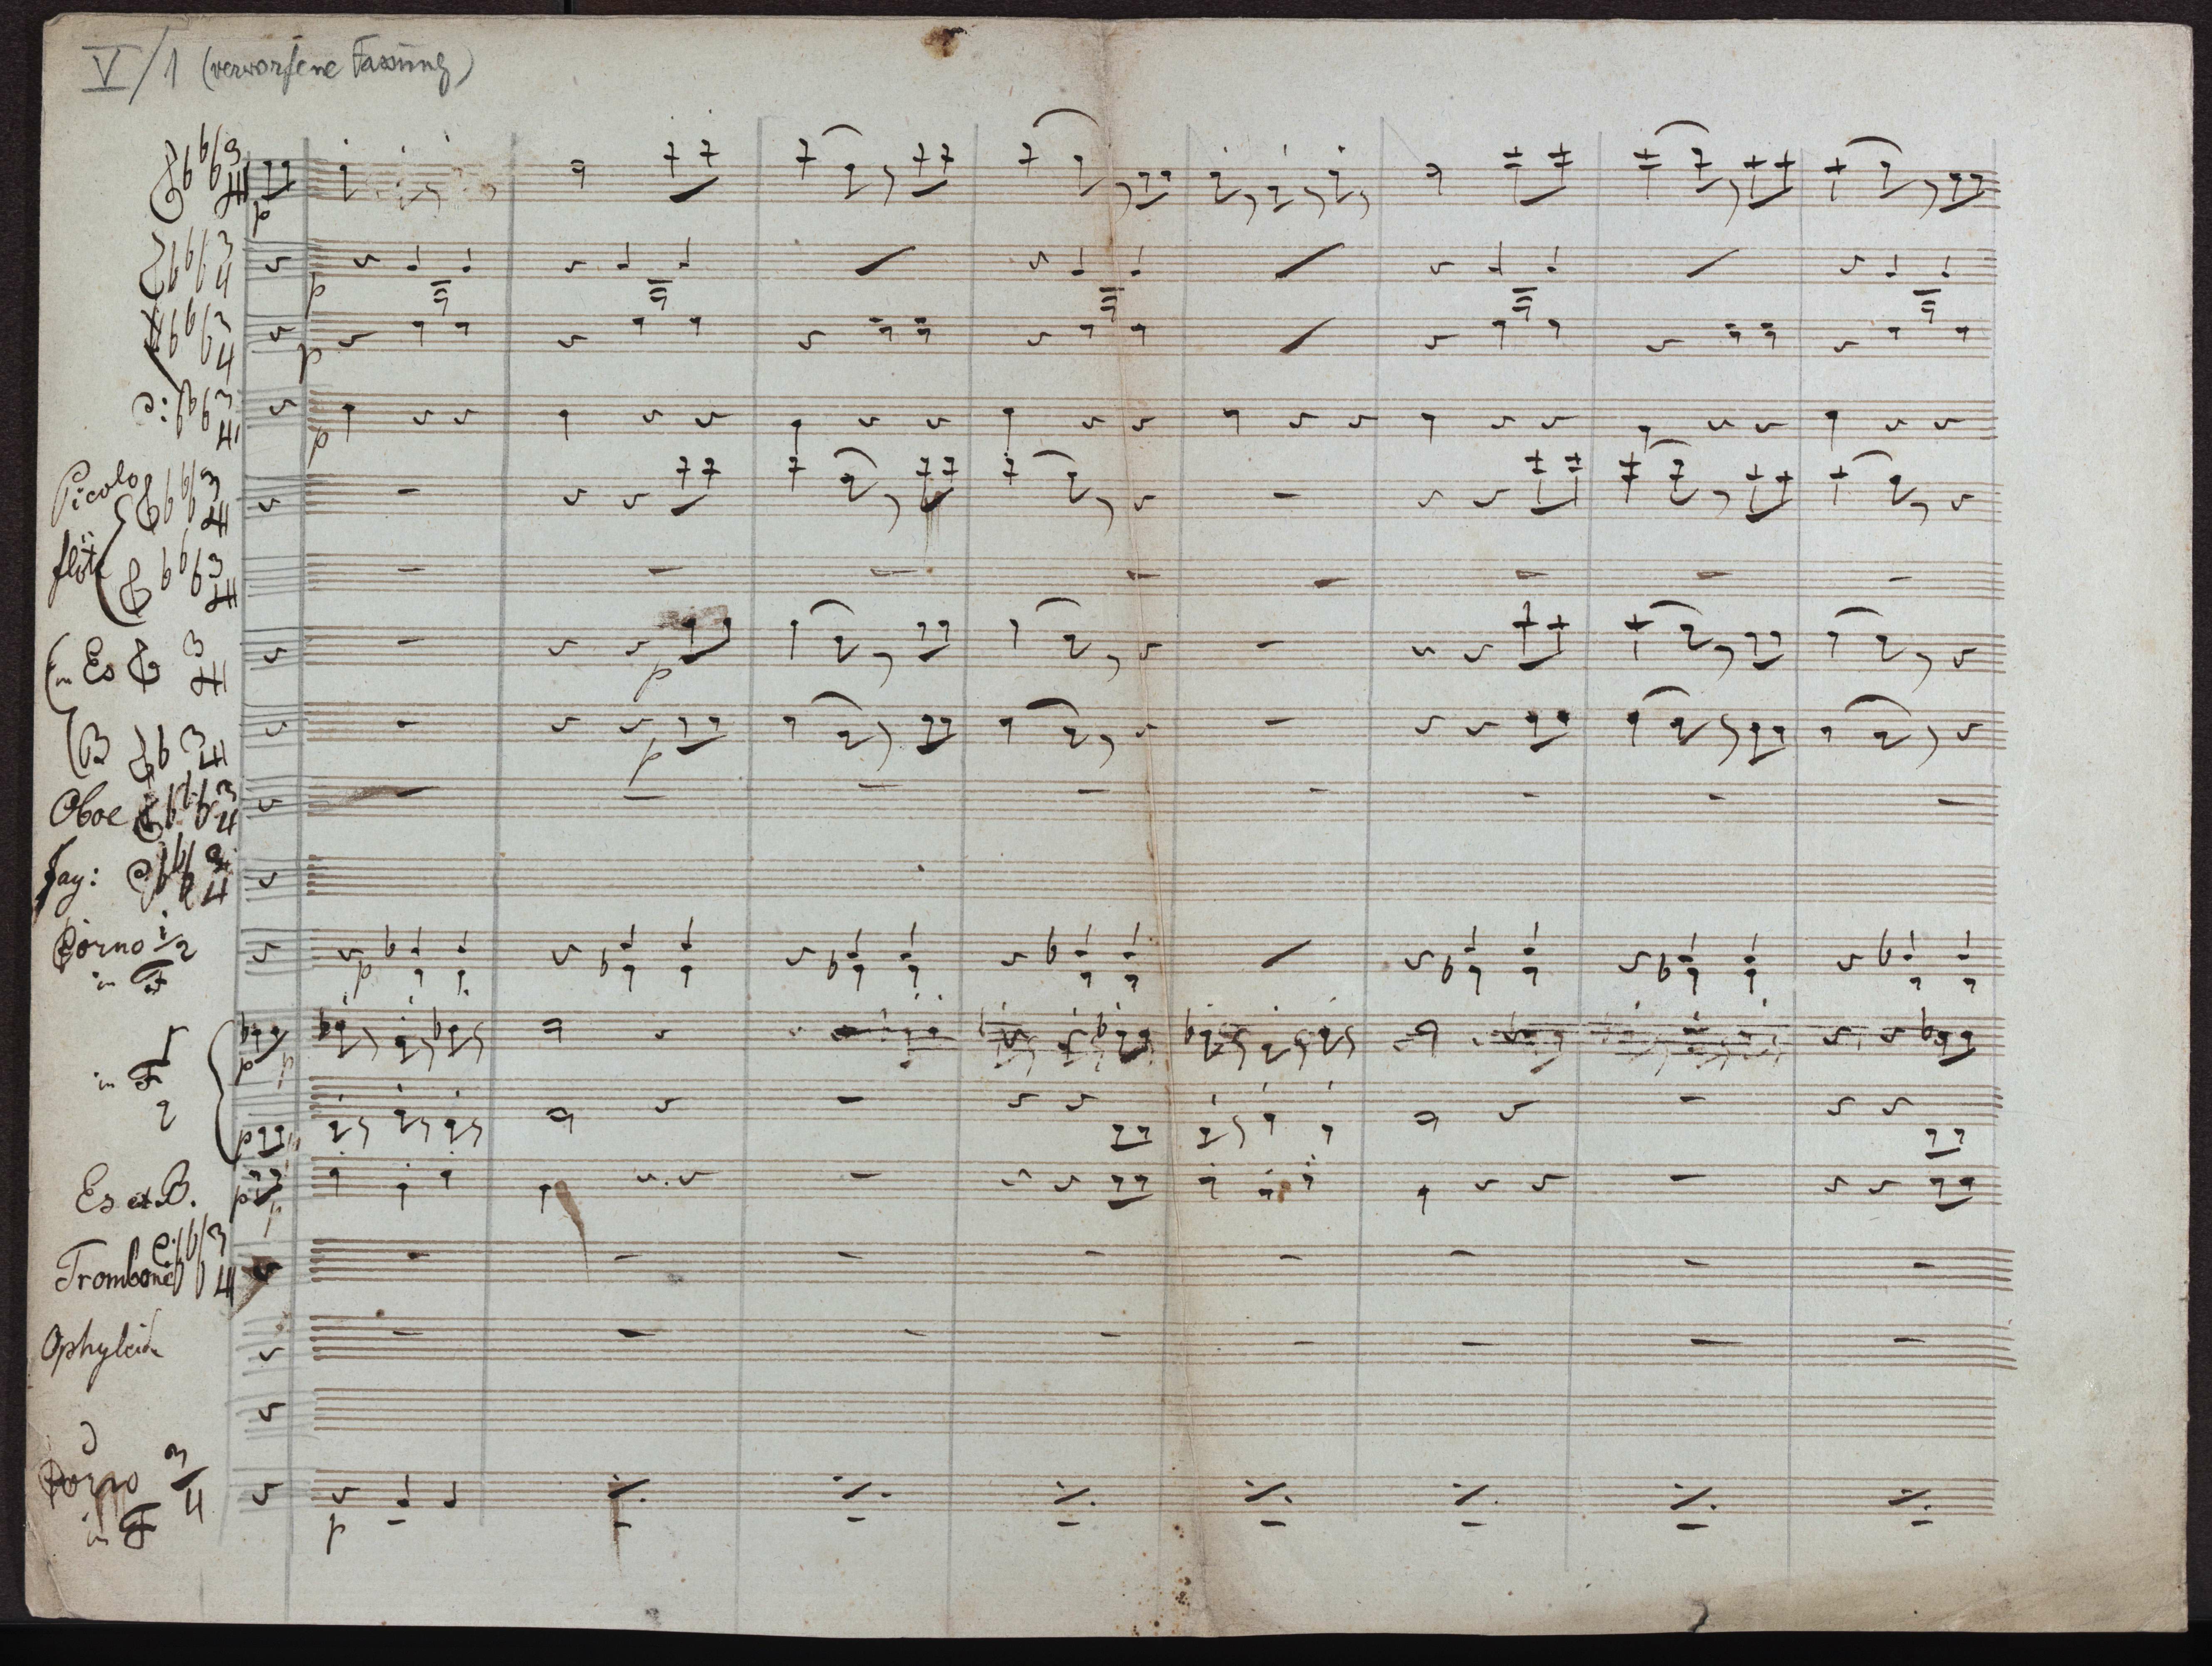 V/1 (verworfene Fassung)
Picolo
flöt
in Es
B
Oboe
Fag:
Corno 1/2
in F
in F
2
Es et B.
Trombone
Ophyleide
Corno 3/4
in F